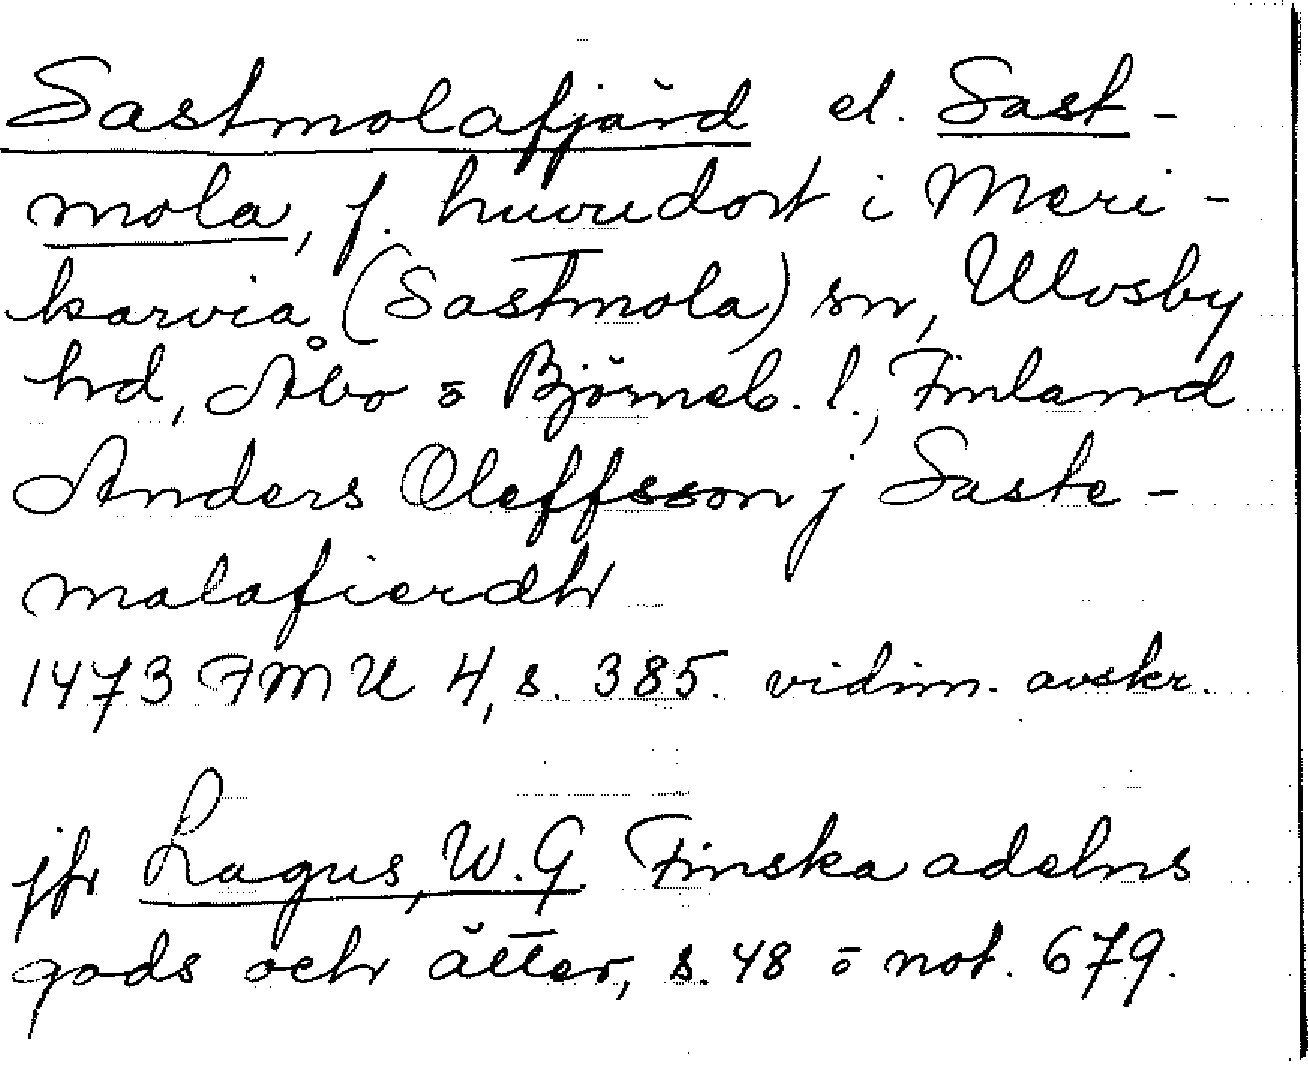 Sastmolafjärd el. Sast-
mola, f. huvudort i Meri-
karvia (Sastmola) sn, Ulvsby
hd, Åbo o Björneb. l., Finland
Anders Oleffsson j Saste-
malafierdh
1473 FMU 4, s. 385. vidim. avskr.
jfr Lagus, W.G. Finska adelns
gods och ätter, s. 48 o not. 679.